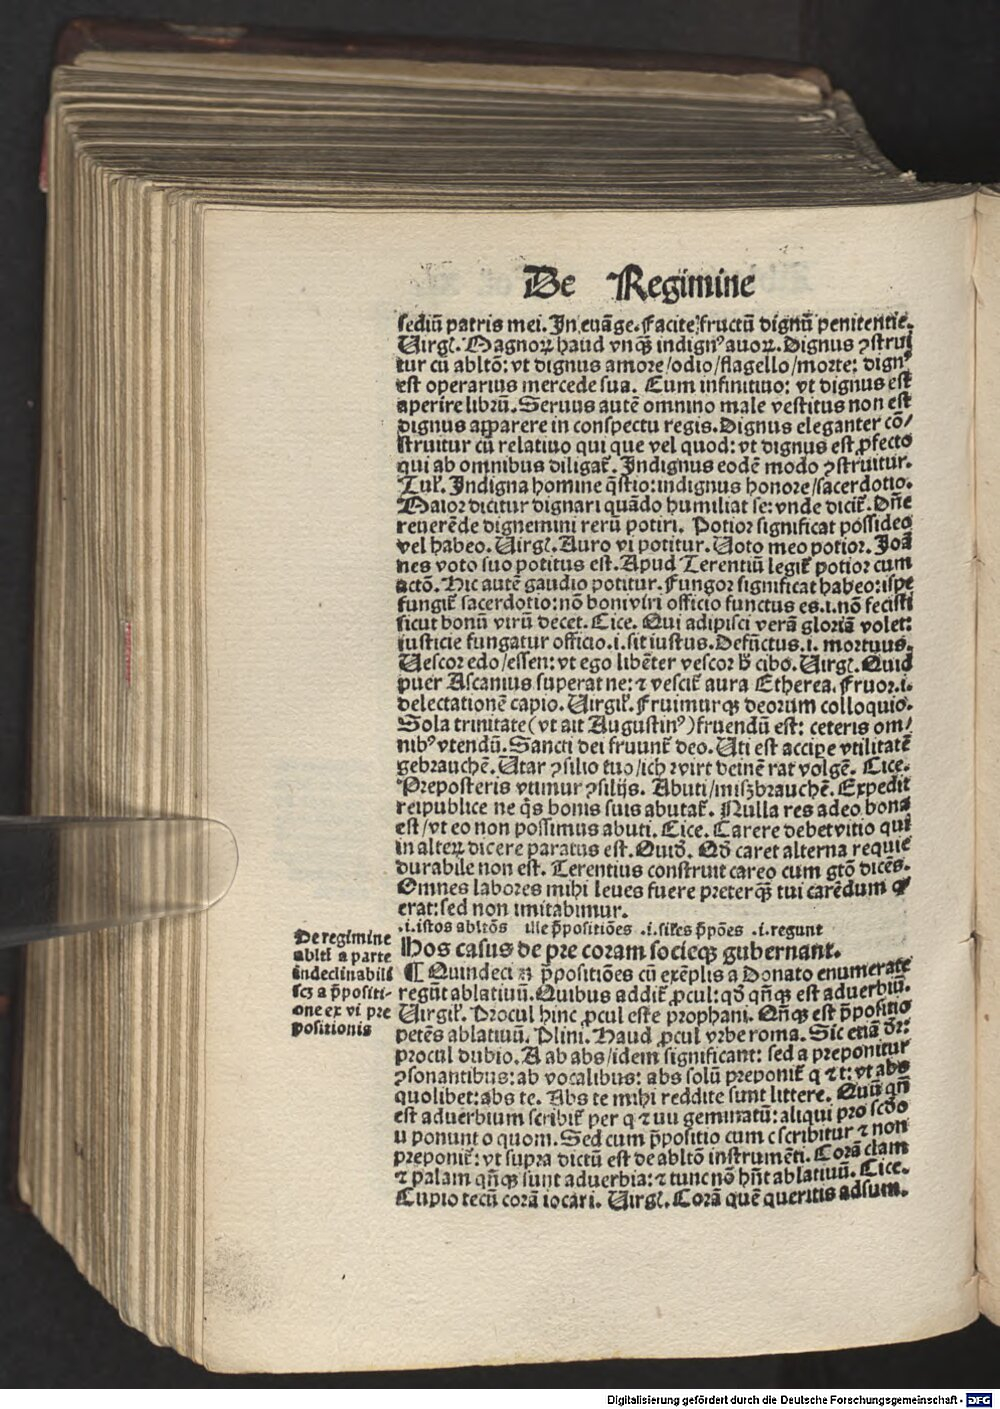 De Regimine
sediū patris mei. In euāge. Facite fructū dignū penitentie.
Uirgꝉ. Magnoꝝ haud vnqꝫ indignꝰ auoꝝ. Dignus ꝯstrui
tur cū abltō: vt dignus amore/odio/flagello/morte: dignꝰ
est operarius mercede sua. Cum infinitiuo: vt dignus est
aperire librū. Seruus autē omnino male vestitus non est
dignus apparere in conspectu regis. Dignus eleganter cō/
struitur cū relatiuo qui que vel quod: vt dignus est ꝓfecto
qui ab omnibus diligat᷑. Indignus eodē modo ꝯstruitur.
Tul᷑. Indigna homine q̄stio: indignus honore/sacerdotio.
Maior dicitur dignari quādo humiliat se: vnde dicit᷑. Dn̄e
reuerēde dignemini rerū potiri. Potior significat possideo
vel habeo. Uirgꝉ. Auro vi potitur. Uoto meo potior. Joā
nes voto suo potitus est. Apud Terentiū legit᷑ potior cum
actō. Hic autē gaudio potitur. Fungor significat habeo: ipse
fungit᷑ sacerdotio: nō boni viri officio functus es .i. nō fecisti
sicut bonū virū decet. Cice. Qui adipisci verā gloriā volet:
iusticie fungatur officio .i. sit iustus. Defūctus .i. mortuus.
Uescor edo/essen: vt ego libēter vescor ħ cibo. Uirgꝉ. Quid
puer Ascanius superat ne: ⁊ vescit᷑ aura Etherea. Fruor .i.
delectationē capio. Uirgil᷑. Fruimurqꝫ deorum colloquio.
Sola trinitate (vt ait Augustinꝰ) fruendū est: ceteris om/
nibꝰ vtendū. Sancti dei fruunt᷑ deo. Uti est accipe vtilitatē
gebrauchē. Utar ꝯsilio tuo/ich wirt deinē rat volgē. Cice.
Preposteris vtimur ꝯsilijs. Abuti/miszbrauchē. Expedit᷑
reipublice ne q̄s bonis suis abutat᷑. Nulla res adeo bona
est/vt eo non possimus abuti. Cice. Carere debet vitio qui
in alteꝝ dicere paratus est. Ouid. Qđ caret alterna requie
durabile non est. Terentius construit careo cum gtō dicēs.
Omnes labores mihi leues fuere preterqꝫ tui carēdum qꝫ
erat: sed non imitabimur.
.i. istos abltōs ille p̄positiōes .i. siĺes p̄pōes .i. regunt
Hos casus de pre coram socieqꝫ gubernant.
De regimine
abltī a parte
indeclinabili
scꝫ a p̄positi-
one ex vi pre
positionis
¶ Quindeci ꝫ p̄positiōes cū exēplis a Donato enumerate
regūt ablatiuū. Quibus addit᷑ ꝓcul: qđ qn̄qꝫ est aduerbiū.
Uirgil᷑. Procul hinc ꝓcul este prophani. Qn̄qꝫ est p̄positio
petēs ablatiuū. Plini. Haud ꝓcul vrbe roma. Sic etiā dr̄:
procul dubio. A ab abs/idem significant: sed a preponitur
ꝯsonantibus: ab vocalibus: abs solū preponit᷑ q ⁊ t: vt abs
quolibet: abs te. Abs te mihi reddite sunt littere. Quū qn̄
est aduerbium scribit᷑ per q ⁊ uu geminatū: aliqui pro scdo
u ponunt o quom. Sed cum p̄positio cum c scribitur ⁊ non
preponit᷑: vt supra dictū est de abltō instrumēti. Corā clam
⁊ palam qn̄qꝫ sunt aduerbia: ⁊ tunc nō hn̄t ablatiuū. Cice.
Cupio tecū corā iocari. Uirgꝉ. Corā quē queritis adsum.
Digitalisierung gefördert durch die Deutsche Forschungsgemeinschaft - DFG